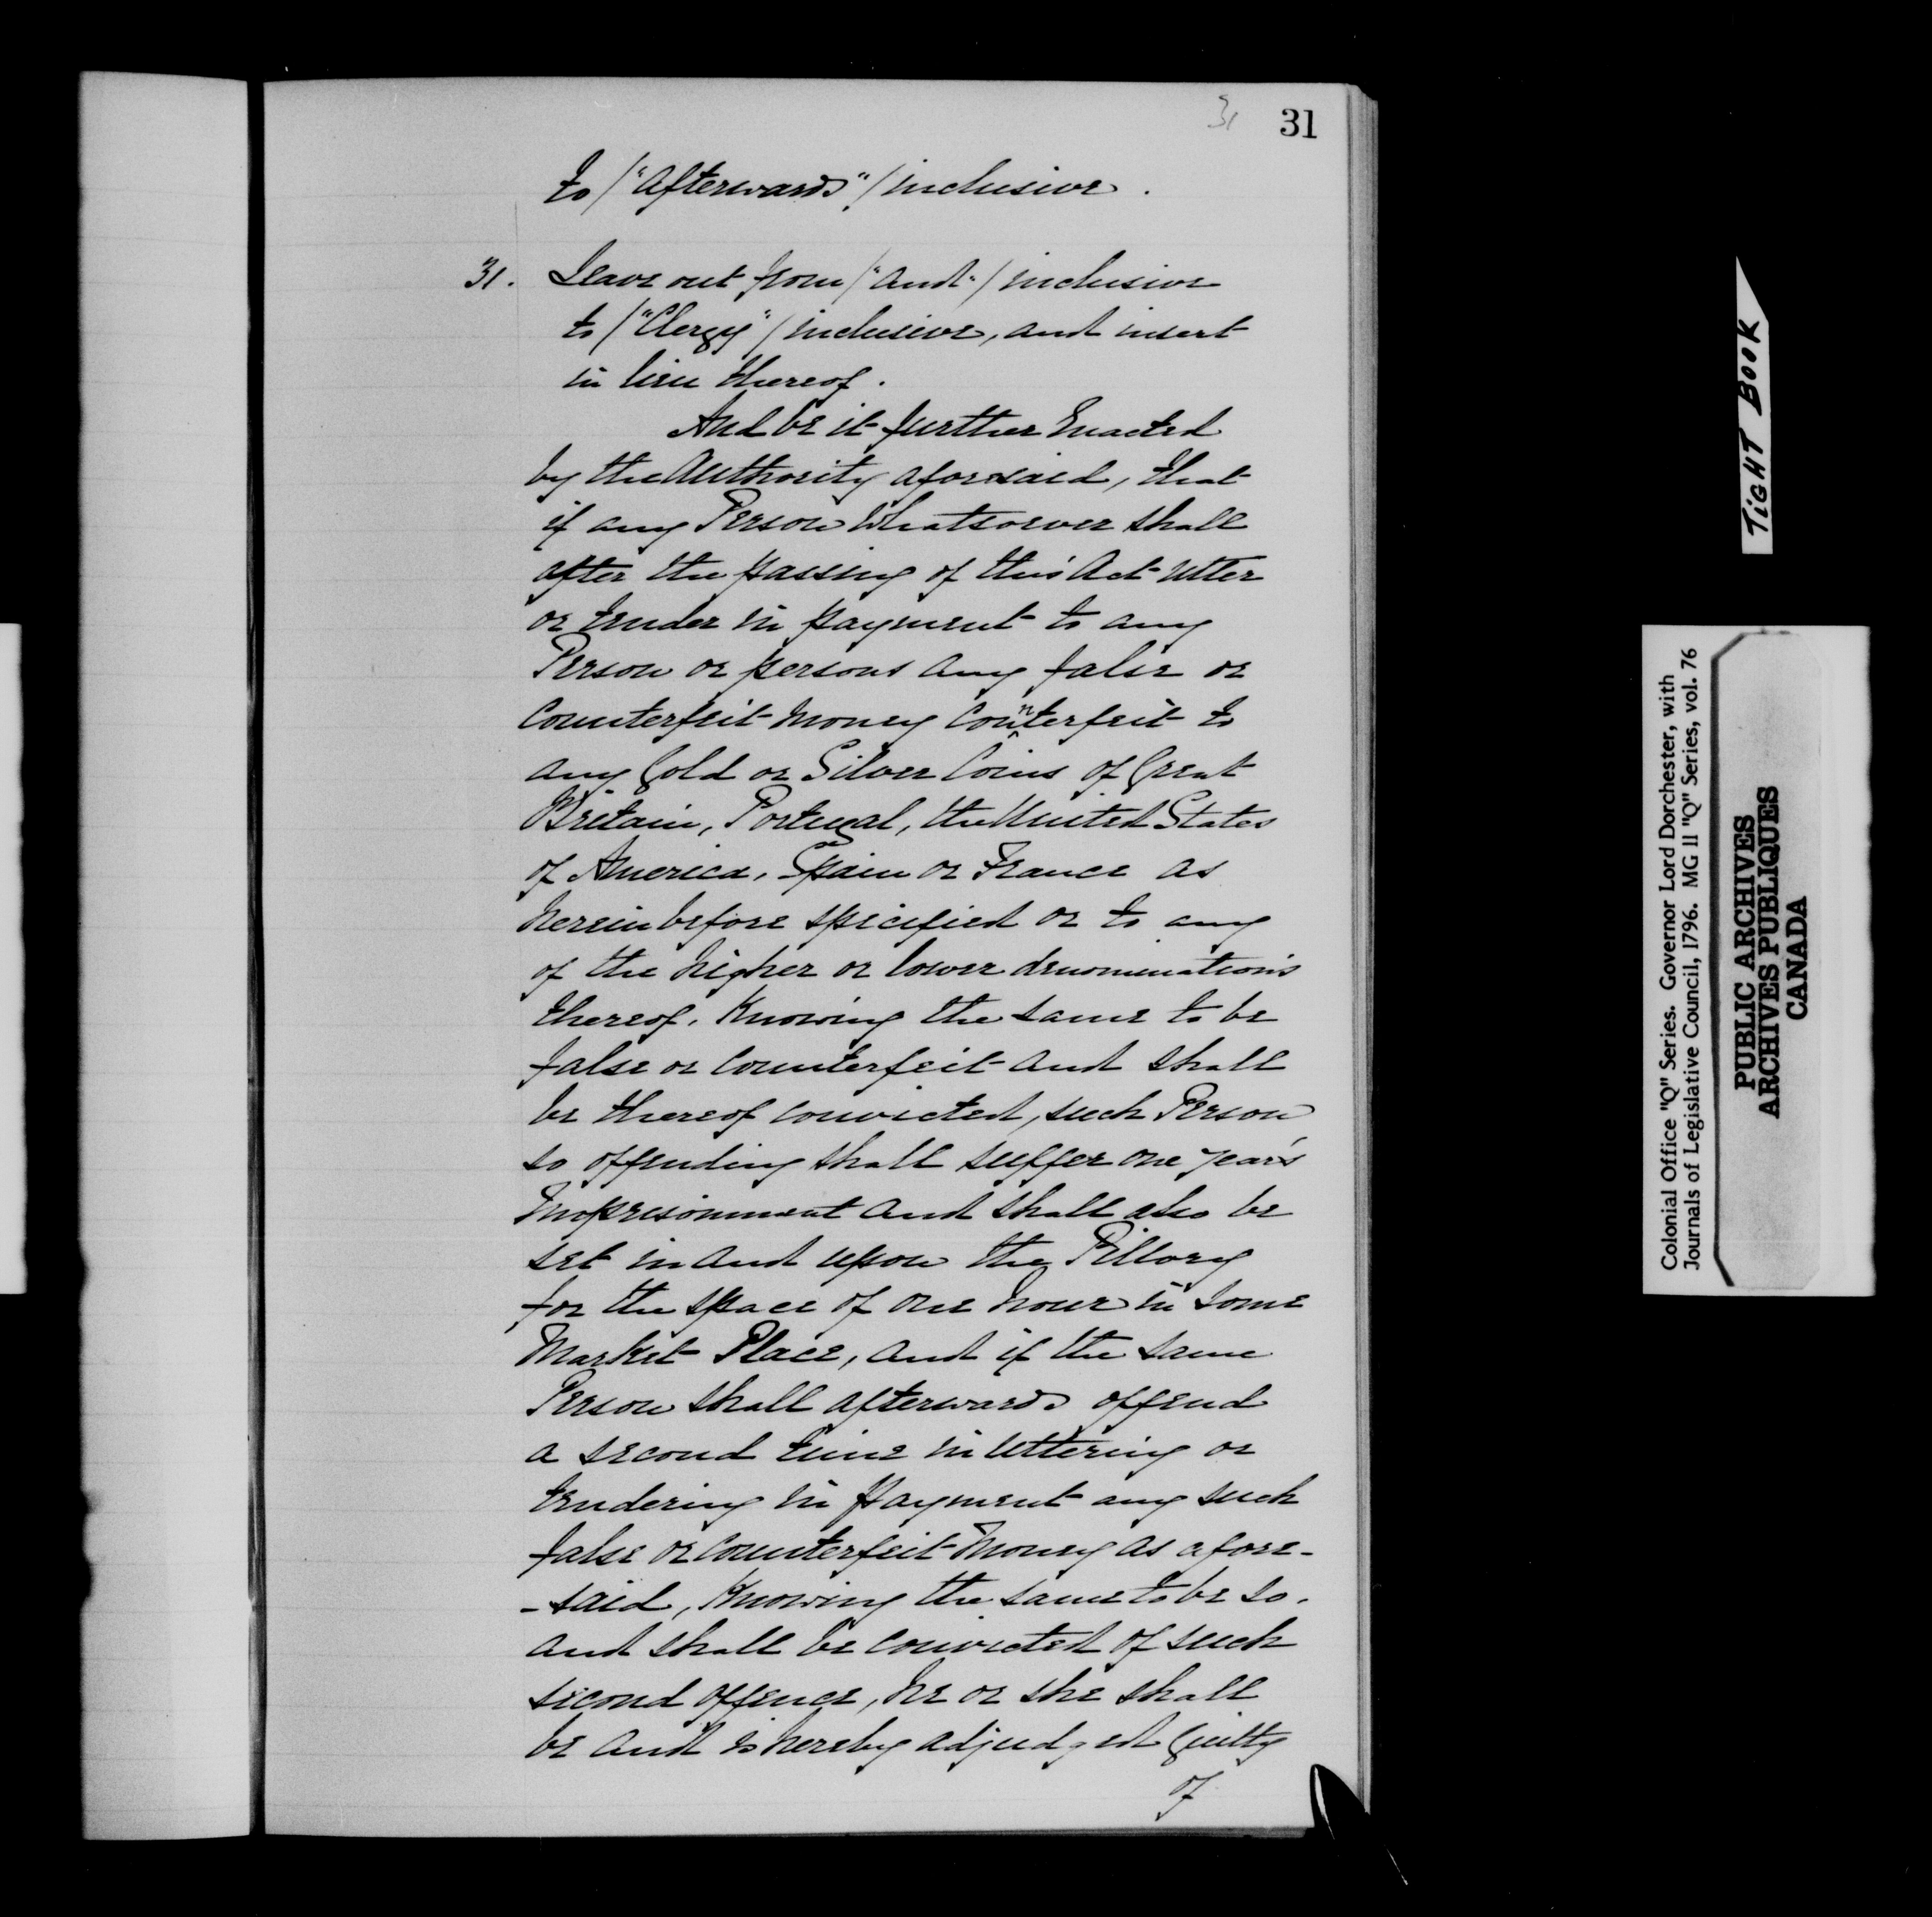 31 31
to/"afterwards"/inclusive.
31. Leave out from/"and"/inclusive
to/"Clergy"/inclusive, and insert
in lieu thereof.
And be it further Enacted
by the Authority aforesaid, that
if any Person whatsoever shall
after the passing of this Act utter
or tender in payment to any
Person or persons any false or
Counterfeit money Counterfeit to
any Gold or Silver Coins of Great
Britain, Portugal, the United States
of America, Spain or France as
hereinbefore specified or to any
of the higher or lower denominations
thereof, Knowing the same to be
false or counterfeit and shall
be thereof convicted, such Person
so offending shall suffer one year's
Imprisonment and shall also be
set in and upon the Pillory
for the space of one hour in some
Market Place, and if the same
Person shall afterwards offend
a second time in uttering or
tendering in payment any such
false or counterfeit money as afore-
-said, Knowing the same to be so.
and shall be convicted of such
second offence, he or she shall
be and is hereby adjudged Guilty
of
TIGHT BOOK
Colonial Office "Q" Series. Governor Lord Dorchester, with
Journals of Legislative Council, 1796. MG 11 "Q" Series, vol. 76
PUBLIC ARCHIVES
ARCHIVES PUBLIQUES
CANADA